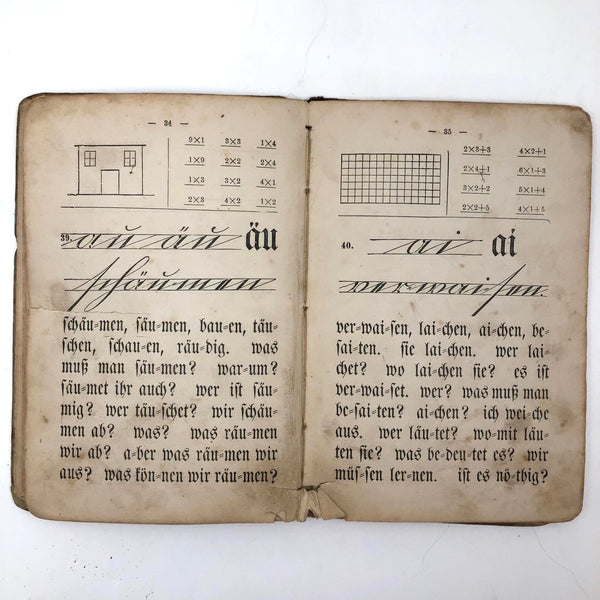 — 34 —
9×1 3×3 1×4
1×9 2×2 2×4
1×3 3×2 4×1
2×3 4×2 1×2
39. au äu äu
schäumen
schäu-men, säu-men, bau-en, täu-
schen, schau-en, räu-dig. was
muß man säu-men? war-um?
säu-met ihr auch? wer ist säu-
mig? wer täu-schet? wir schäu-
men ab? was? was räu-men
wir ab? a-ber was räu-men wir
aus? was kön-nen wir räu-men?
— 35 —
2×3+3 4×2+1
2×4+1 6×1+3
3×2+2 5×1+4
2×2+5 4×1+5
40. ai ai
verwaisen.
ver-wai-sen, lai-chen, ai-chen, be-
sai-ten. sie lai-chen. wer lai-
chet? wo lai-chen sie? es ist
ver-wai-set. wer? was muß man
be-sai-ten? ai-chen? ich wei-che
aus. wer läu-tet? wo-mit läu-
ten sie? was be-deu-tet es? wir
müs-sen ler-nen. ist es nö-thig?